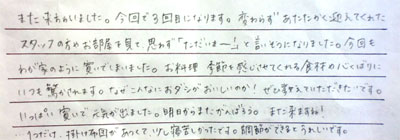 また来ちゃいました。今回で3回目になります。変わらず あたたかく迎えてくれた
スタッフの方やお部屋を見て、思わず「ただいまー!」と言いそうになりました。今回も
わが家のように寛いでしまいました。お料理 季節を感じさせてくれる食材や心くばりに
いつも驚かされます。なぜこんなにおダシがおいしいのか!ぜひ覚えていただきたいです。
いっぱい寛いで元気が出ました。明日からまたがんばろう。また来ますね!
一つだけ、掛け布団があつくて少し寝苦しかったです。調節ができるとうれしいです。